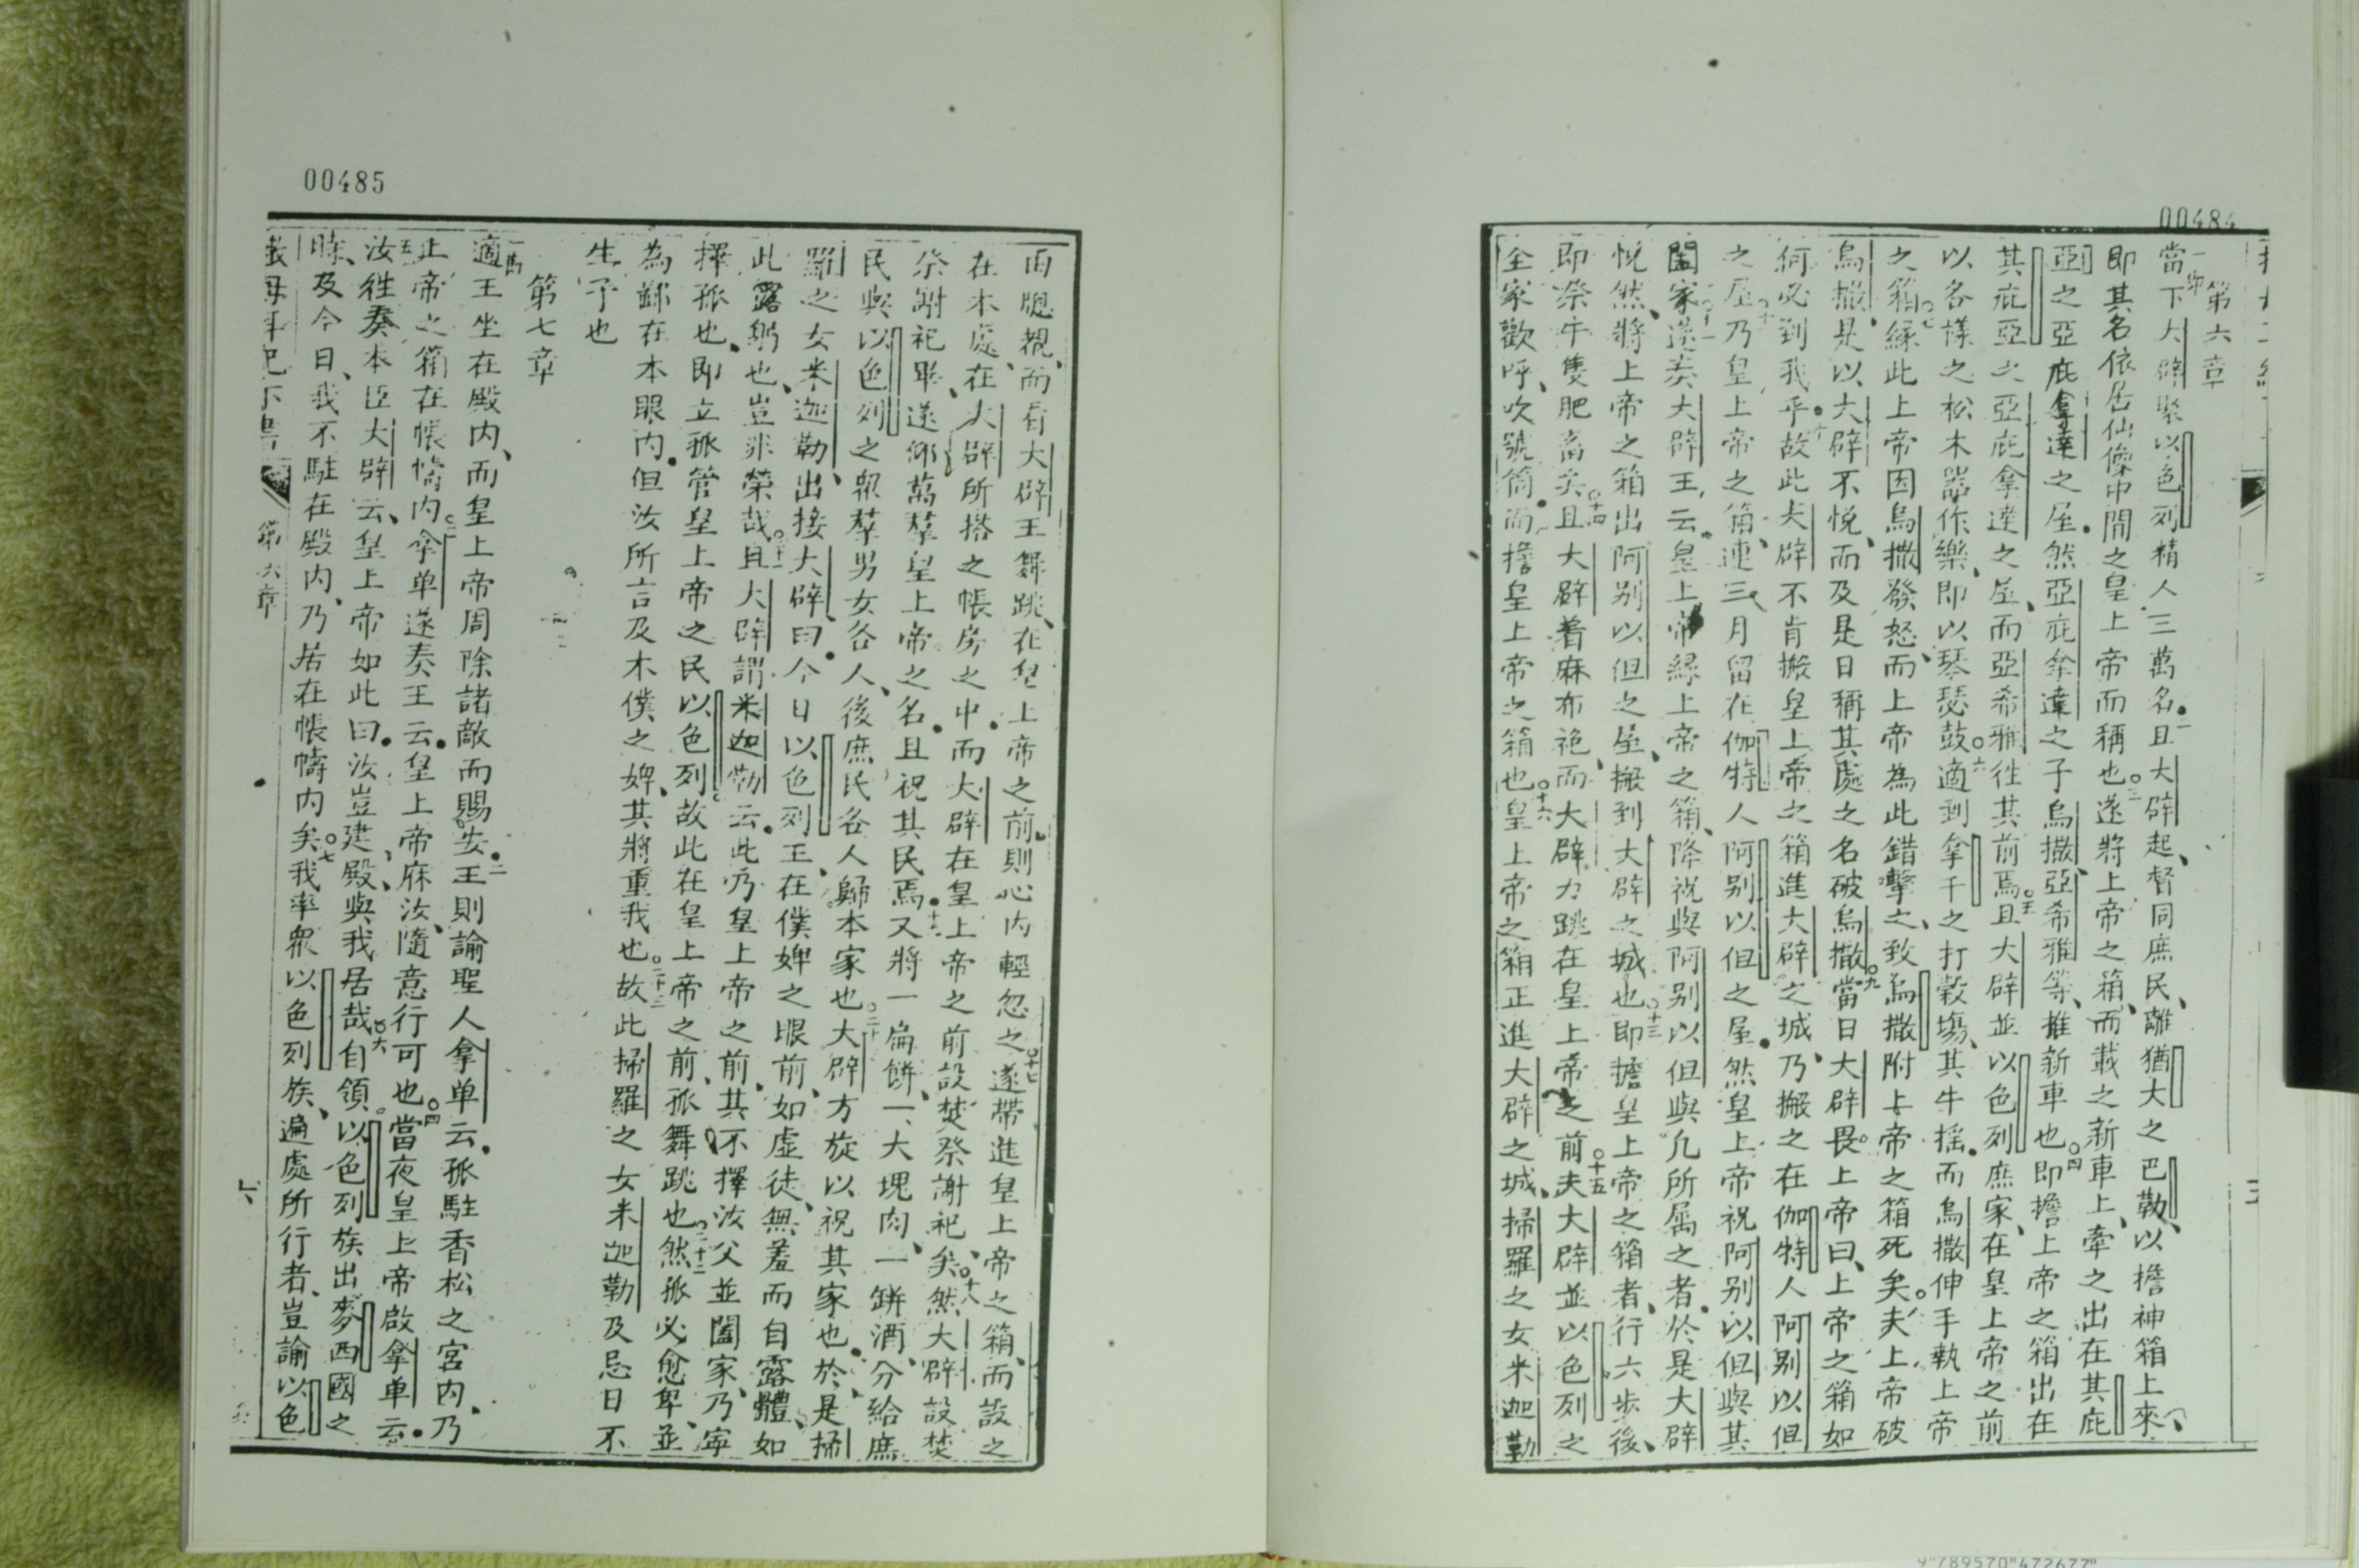 00484
第六章
當下大辟聚以色列精人三萬名且大辟起督同庶民離猶大之巴勒以擔神箱上來
即其名依居仙像中間之皇上帝而稱也遂將上帝之箱而載之新車上牽之出在其庇
亞之亞庇拿達之屋然亞庇拿達之子烏撒亞希雅等推新車也即擔上帝之箱出在
其庇亞之亞庇拿達之屋而亞希雅徃其前焉且大辟並以色列庶家在皇上帝之前
以各樣之松木器作樂即以琴瑟鼓適到拿千之打穀塲其牛搖而烏撒伸手執上帝
之箱緣此上帝因烏撒發怒而上帝為此錯擊之致烏撒附上帝之箱死矣夫上帝破
烏撒是以大辟不悅而及是日稱其處之名破烏撒當日大辟畏上帝曰上帝之箱如
何必到我乎故此大辟不肯搬皇上帝之箱進大辟之城乃搬之在伽特人阿别以但
之屋乃皇上帝之箱連三月留在伽特人阿别以但之屋然皇上帝祝阿别以但與其
闔家遂奏大辟王云皇上帝緣上帝之箱降祝與阿别以但與凡所屬之者於是大辟
悅然將上帝之箱出阿别以但之屋搬到大辟之城也即擔皇上帝之箱者行六步後
即祭牛隻肥畜矣且大辟着麻布袍而大辟力跳在皇上帝之前夫大辟並以色列之
全家歡呼吹號筒而擔皇上帝之箱也皇上帝之箱正進大辟之城掃羅之女米迦勒
00485
由牕覩而看大辟王舞跳在皇上帝之前則心内輕忽之遂帶進皇上帝之箱而設之
在本處在大辟所搭之帳房之中而大辟在皇上帝之前設焚祭謝祀矣然大辟設焚
祭謝祀畢遂仰萬羣皇上帝之名且祝其民焉又將一扁餅一大塊肉一缾酒分給庶
民與以色列之衆羣男女各人後庶民各人歸本家也大辟方旋以祝其家也於是掃
羅之女米迦勒出接大辟曰今日以色列王在僕婢之眼前如虛徒無羞而自露體如
此露躬也豈非榮哉且大辟謂米迦勒云此乃皇上帝之前其不擇汝父並闔家乃寧
擇孤也即立孤管皇上帝之民以色列故此在皇上帝之前孤舞跳也然孤必愈卑並
為鄙在本眼内但汝所言及本僕之婢其將重我也故此掃羅之女米迦勒及忌日不
生子也
第七章
適王坐在殿内而皇上帝周除諸敵而賜安王則諭聖人拿单云孤駐香松之宮内乃
上帝之箱在帳幬内拿单遂奏王云皇上帝庥汝隨意行可也當夜皇上帝啟拿单云
汝徃奏本臣大辟云皇上帝如此曰汝豈建殿與我居哉自領以色列族出麥西國之
時及今日我不駐在殿内乃居在帳幬内矣我率衆以色列族遍處所行者豈諭以色
第六章